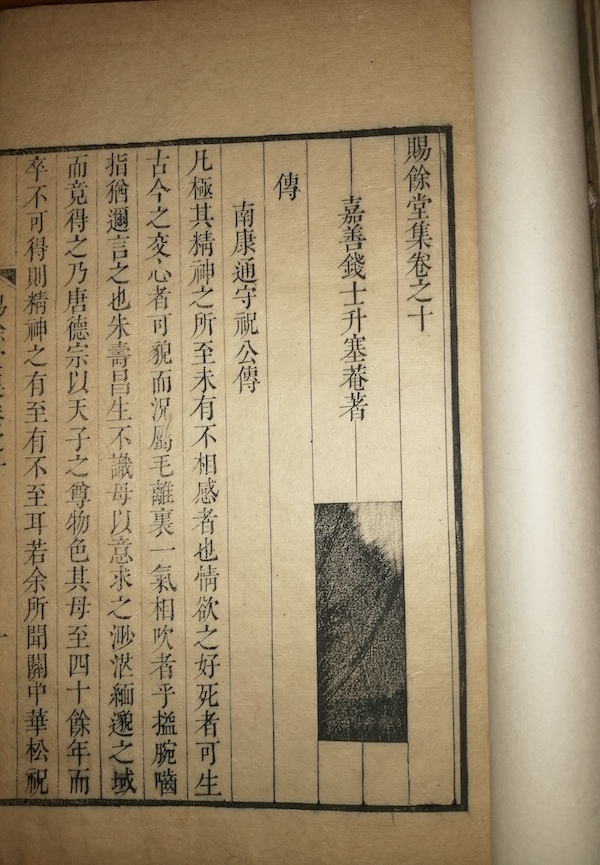 賜餘堂集卷之十
嘉善錢士升塞菴著
傳
南康通守祝公傳
凡極其精神之所至未有不相感者也情欲之好死者可生
古今之交心者可貌而況屬毛離裏一氣相吹者乎搤腕嚙
指猶邇言之也朱壽昌生不識母以意求之渺茫緬邈之域
而竟得之乃唐德宗以天子之尊物色其母至四十餘年而
卒不可得則精神之有至有不至耳若余所聞關中華松祝